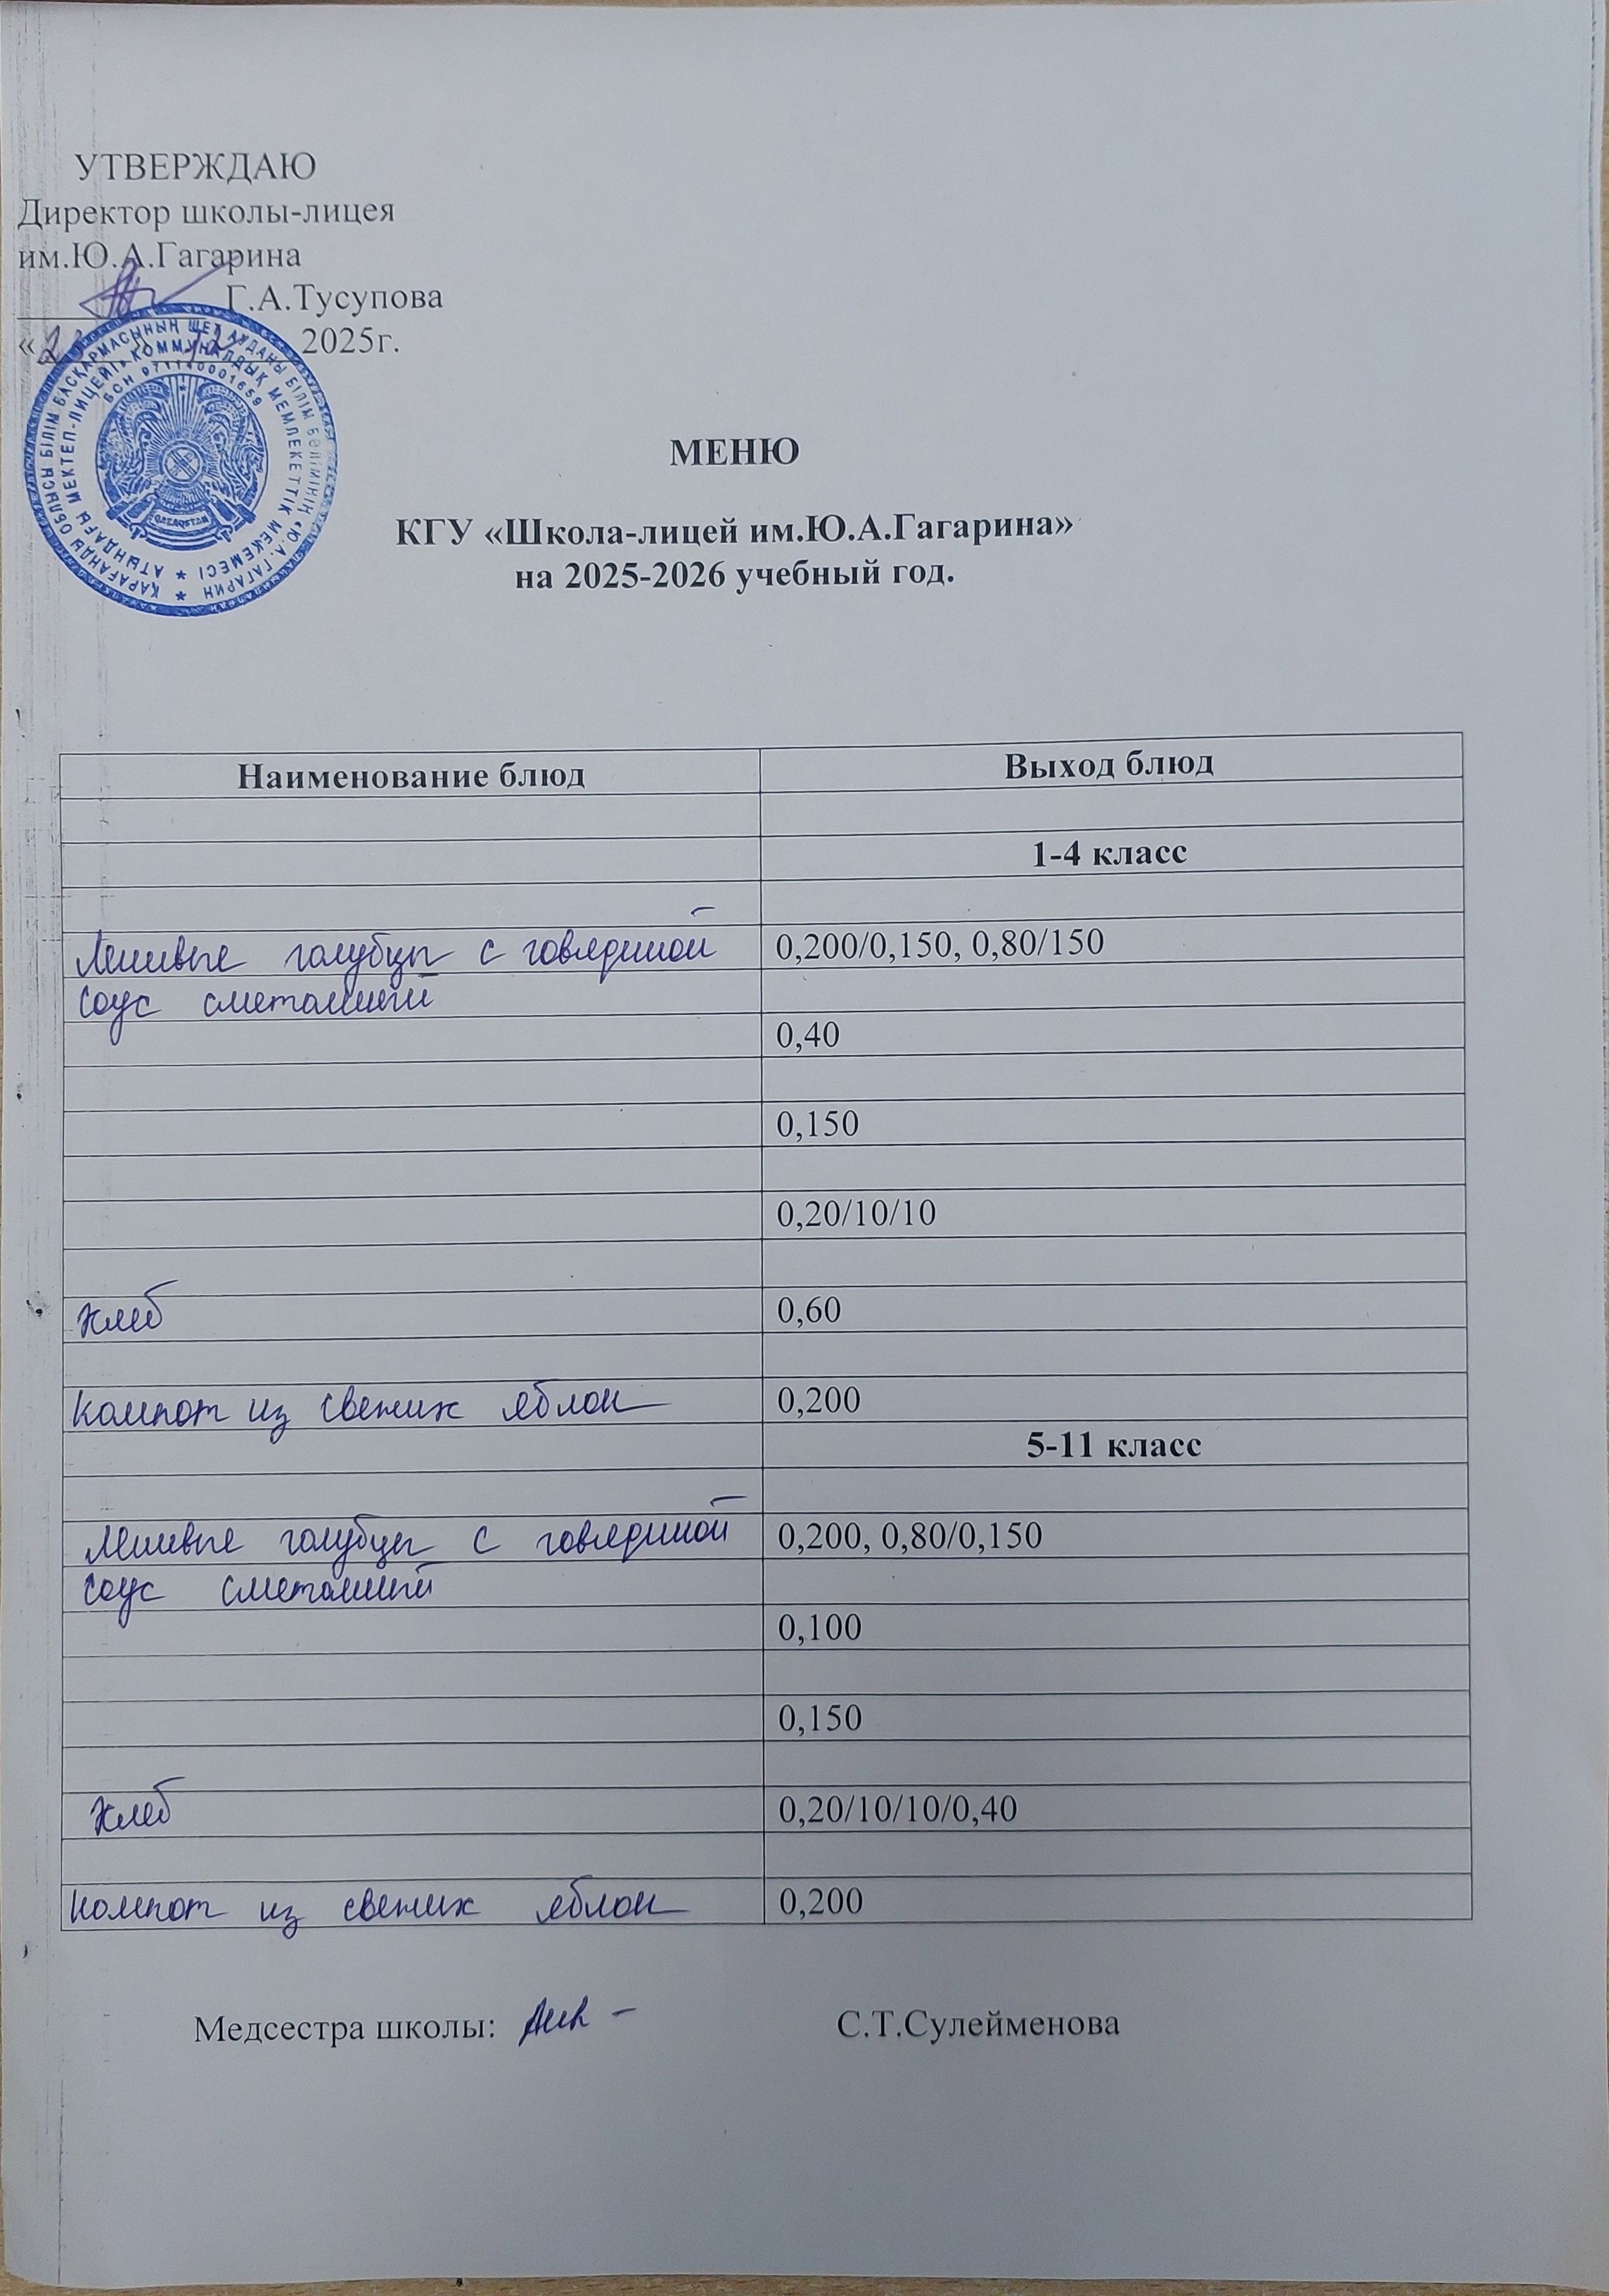 УТВЕРЖДАЮ
Директор школы-лицея
им.Ю.А.Гагарина
Г.А.Тусупова
« » 12 2025г.
ҚАРАҒАНДЫ ОБЛЫСЫ БІЛІМ БАСҚАРМАСЫНЫҢ ШЕТ АУДАНЫ БІЛІМ БӨЛІМІНІҢ «Ю.А.ГАГАРИН
АТЫНДАҒЫ МЕКТЕП-ЛИЦЕЙІ» КОММУНАЛДЫҚ МЕМЛЕКЕТТІК МЕКЕМЕСІ
БСН 971140001659
QAZAQSTAN
МЕНЮ
КГУ «Школа-лицей им.Ю.А.Гагарина»
на 2025-2026 учебный год.
Наименование блюд Выход блюд
1-4 класс
Ленивые голубцы с говядиной 0,200/0,150, 0,80/150
соус сметанный
0,40
0,150
0,20/10/10
Хлеб 0,60
Компот из свежих яблок 0,200
5-11 класс
Ленивые голубцы с говядиной 0,200, 0,80/0,150
соус сметанный
0,100
0,150
Хлеб 0,20/10/10/0,40
Компот из свежих яблок 0,200
Медсестра школы: С.Т.Сулейменова